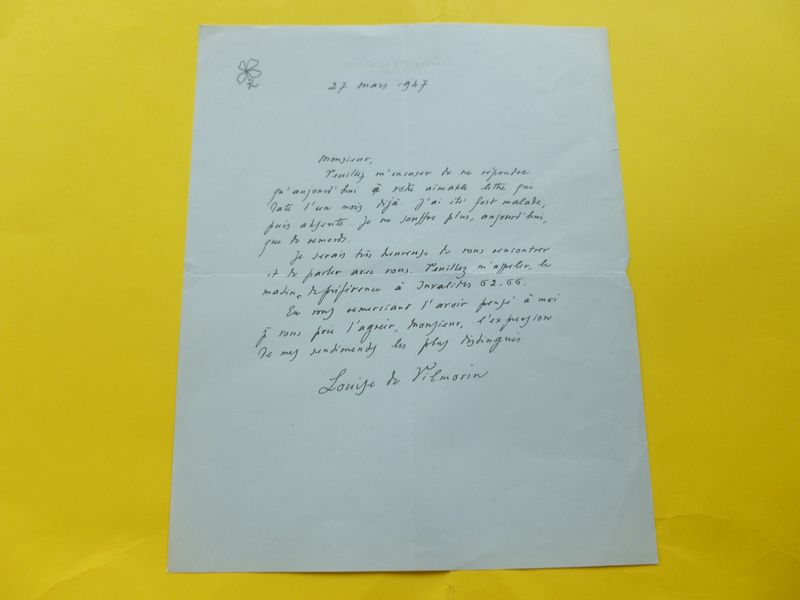 27 mars 1947
Monsieur,
Veuillez m'excuser de ne répondre
qu'aujourd'hui à votre aimable lettre qui
date d'un mois déjà. J'ai été fort malade,
puis absente. Je ne souffre plus, aujourd'hui,
que de remords.
Je serais très heureuse de vous rencontrer
et de parler avec vous. Veuillez m'appeler, le
matin, de préférence à Invalides 62-66.
En vous remerciant d'avoir pensé à moi
je vous prie d'agréer, Monsieur, l'expression
de mes sentiments les plus distingués
Louise de Vilmorin